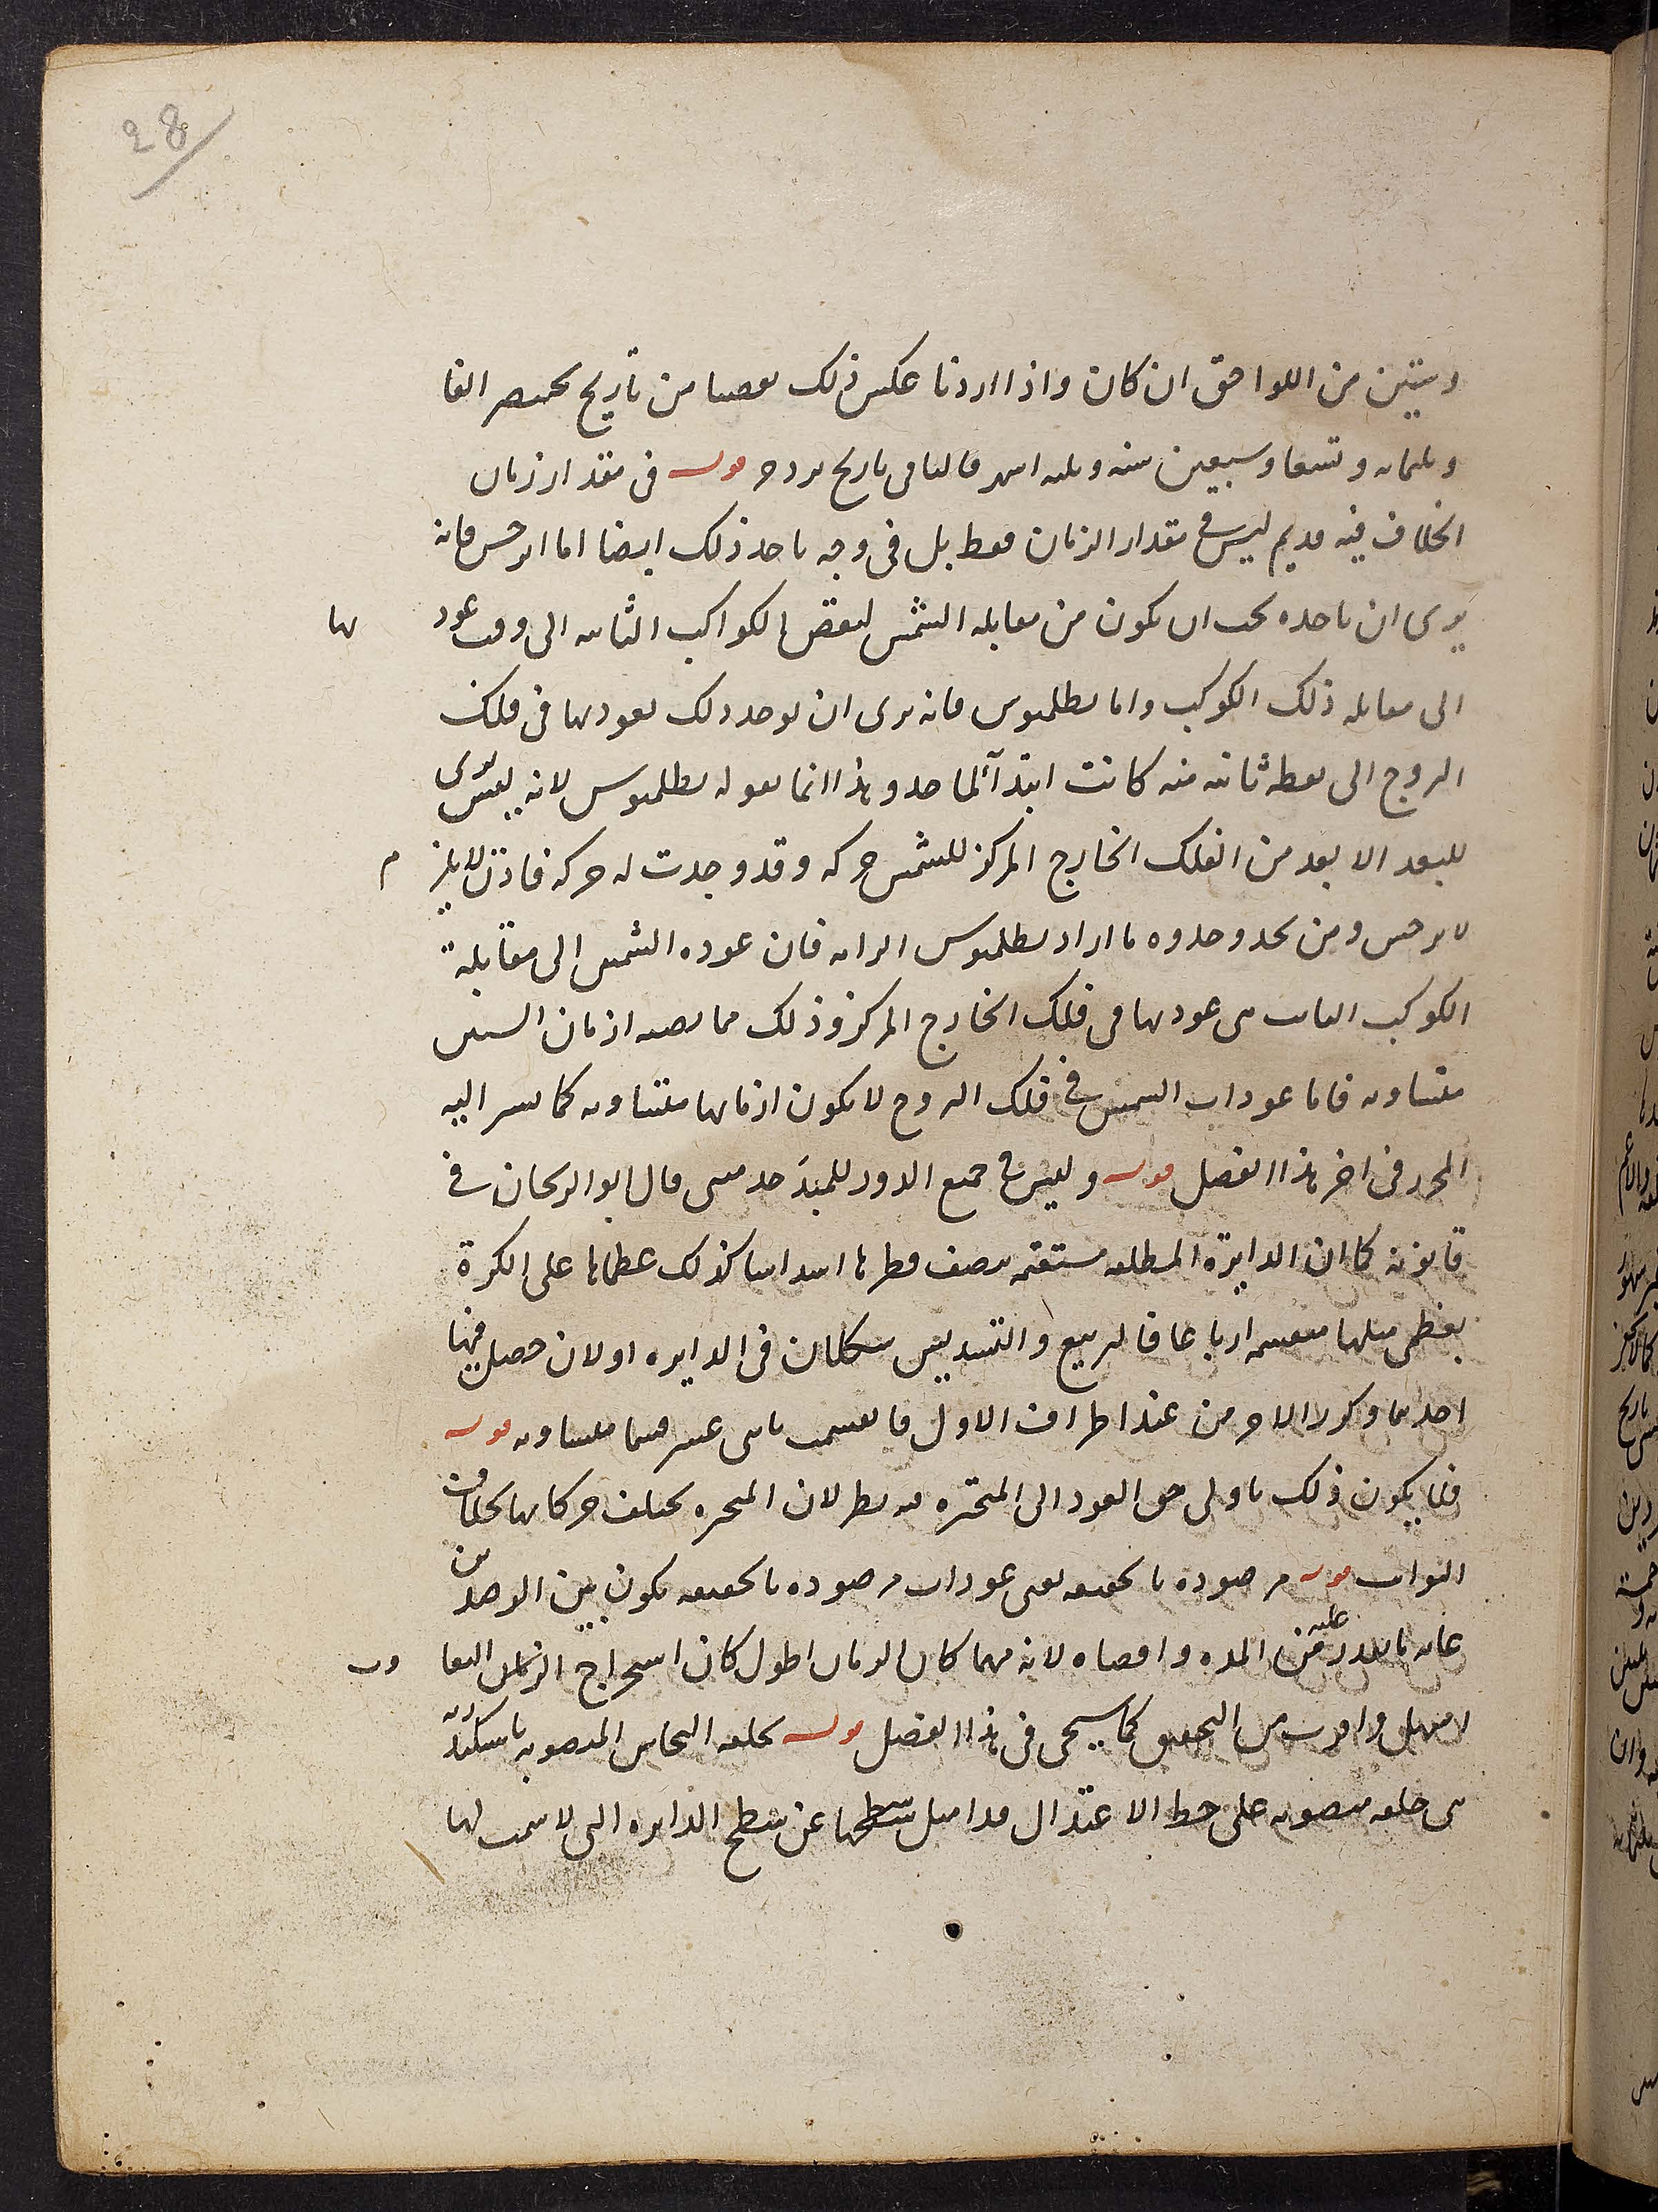 28
وستين من اللواحق ان كان واذا اردنا عكس ذلك نقصنا من تاريخ بختنصر الفا
وثلثمائه وتسعا وسبعين سنه وثلثه اشهر فالباقى تاريخ يزدجرد قوله فى مقدار زمان
الخلاف فيه قديم ليس فى مقدار الزمان فقط بل فى وجه ماخذ ذلك ايضا اما ابرخس فانه
يرى ان ماخذه يجب ان يكون من مقابله الشمس لبعض الكواكب الثابته الى وقت عودها
الى مقابله ذلك الكوكب واما بطلميوس فانه يرى ان يوخذ ذلك بعودها فى فلك
البروج الى نقطه ثابته منه كانت ابتدآ الماخذ وهذا انما يقوله بطلميوس لانه ليس يرى
للبعد الابعد من الفلك الخارج المركز للشمس حركه وقد وجدت له حركه فاذن لا يلزم
لابرخس ومن يحذو حذوه ما اراد بطلميوس الزامه فان عوده الشمس الى مقابلة
الكوكب الثابت هى عودها فى فلك الخارج المركز وذلك مما يصير ازمان السنين
متساويه فاما عودات الشمس فى فلك البروج لا يكون ازمانها متساويه كما يشير اليه
المحرر فى اخر هذا الفصل قوله وليس فى جميع الدور للمبدٔ حد قال ابو الريحان فى
قانونه كما ان الدايرة المطلقه منقسمه بنصف قطرها اسداسا كذلك عظماها على الكرة
بقطبى ميلها منقسمه ارباعا فالتربيع والتسديس شكلان فى الدايره اولان حصل فيها
احدهما وكرر الاخر من عند اطراف الاول فانقسمت باثنى عشر قسما متساويه قوله
فلما يكون ذلك باولى من العود الى المتحيره فيه نظر لان المتحيره يختلف حركاتها بخلاف
الثوابت قوله مرصوده بالحقيقه يعنى عودات مرصوده بالحقيقه يكون بين الوصدين
غايه ما يقدر عليه من المده واقصاه لانه مهما كان الزمان اطول كان استخراج الزمان التفاوت
لا سهل واقرب من التحقيق كما سيجى فى هذا الفصل قوله بحلقه النحاس المنصوبه باسكندريه
هى حلقه منصوبه على خط الاعتدال سطحها عن سطح الدايره التى لا سمت لها